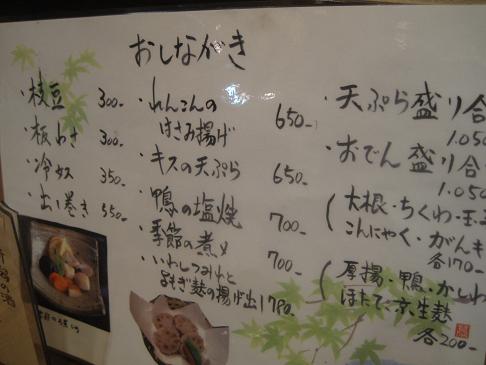 おしながき
・枝豆 300-
・板わさ 300-
・冷奴 350-
・出し巻き 550-
・れんこんの
はさみ揚げ 650-
・キスの天ぷら 650-
・鴨の塩焼 700-
・季節の煮〆 700-
・いわしつみれと
よもぎ麩の揚げ出し 780-
・天ぷら盛り合
1.050
・おでん盛り合
1.050
大根・ちくわ・玉子
こんにゃく・がんも
各170-
厚揚・鴨・かしわ
ほたて、京生麩
各200-
の酒